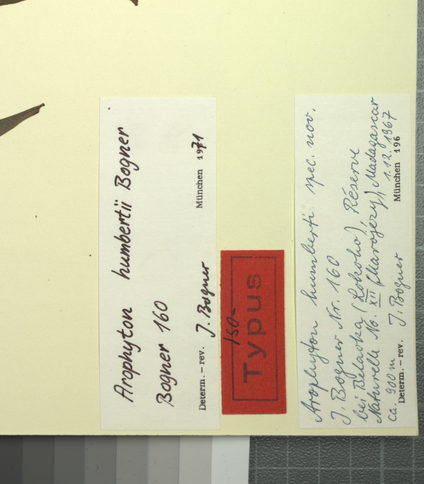 Arophyton humbertii Bogner
Bogner 160
Determ.-rev. J. Bogner München 1971
Iso-
Typus
Arophyton humberti spec. nov.
J. Bogner Nr. 160
bei Belaoka (Lokoho), Réserve
Naturelle No. XII (Marojezy), Madagascar
ca. 900 m 1.12.1967
Determ.-rev. J. Bogner München 196